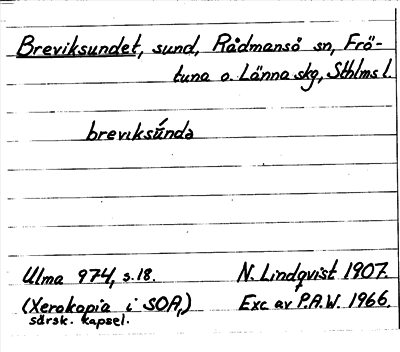 Breviksundet, sund, Rådmansö sn, Frö-
tuna o. Länna skg, Sthlms l.
breviksúndə
Ulma 974, s. 18.
N. Lindqvist 1907.
(Xerokopia i SOA,)
särsk. kapsel.
Exc av P.A.W. 1966.